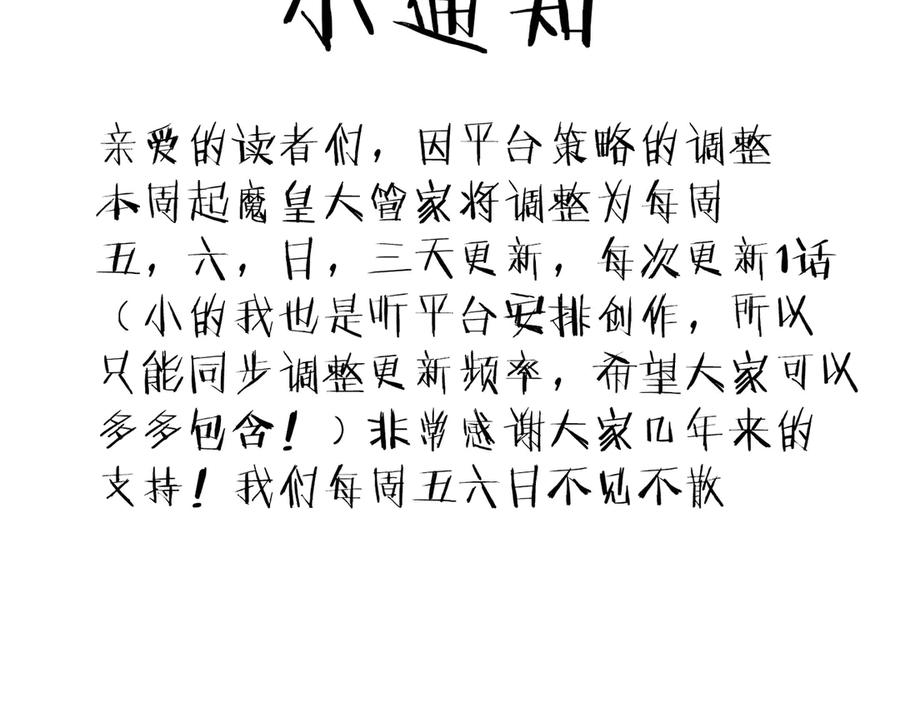 小通知
亲爱的读者们，因平台策略的调整
本周起魔皇大管家将调整为每周
五，六，日，三天更新，每次更新1话
（小的我也是听平台安排创作，所以
只能同步调整更新频率，希望大家可以
多多包含！）非常感谢大家几年来的
支持！我们每周五六日不见不散